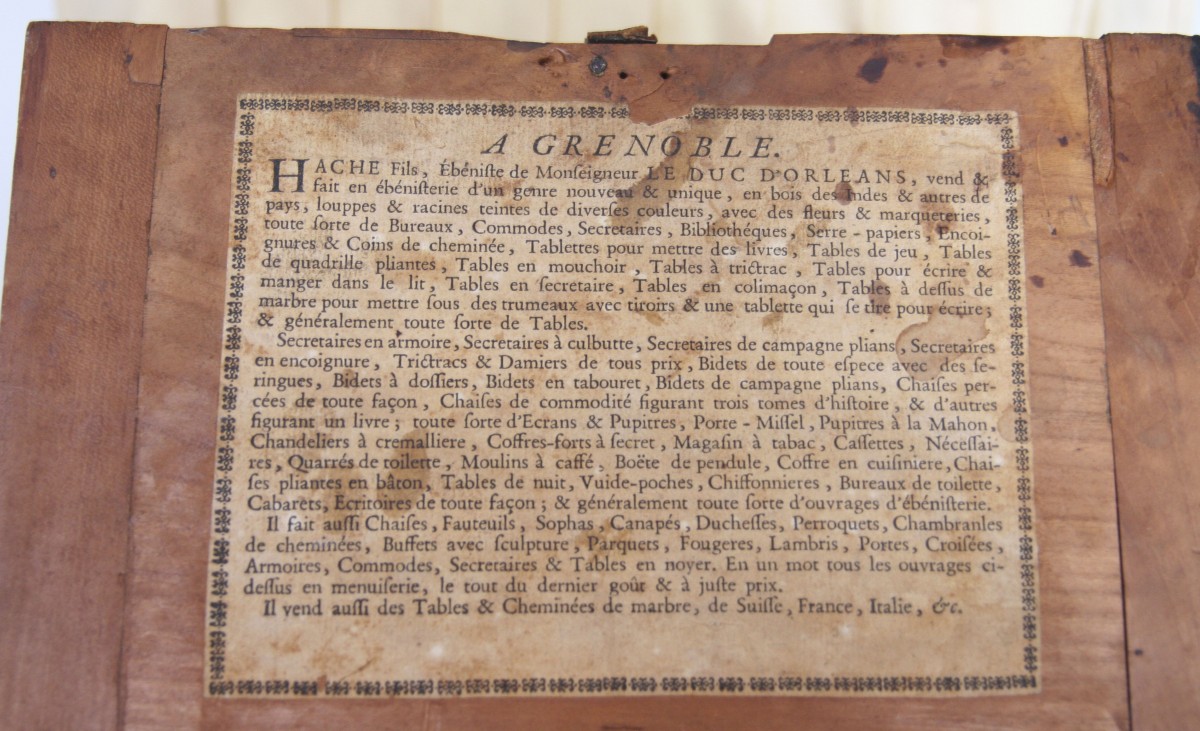 A GRENOBLE.
HACHE Fils, Ébéniſte de Monſeigneur LE DUC D'ORLEANS, vend &
fait en ébéniſterie d'un genre nouveau & unique, en bois des Indes & autres de
pays, louppes & racines teintes de diverſes couleurs, avec des fleurs & marqueteries,
toute ſorte de Bureaux, Commodes, Secretaires, Bibliothéques, Serre-papiers, Encoi-
gnures & Coins de cheminée, Tablettes pour mettre des livres, Tables de jeu, Tables
de quadrille pliantes, Tables en mouchoir, Tables à trictrac, Tables pour écrire &
manger dans le lit, Tables en ſecretaire, Tables en colimaçon, Tables à deſſus de
marbre pour mettre ſous des trumeaux avec tiroirs & une tablette qui ſe tire pour écrire;
& généralement toute ſorte de Tables.
Secretaires en armoire, Secretaires à culbutte, Secretaires de campagne plians, Secretaires
en encoignure, Trictracs & Damiers de tous prix, Bidets de toute eſpece avec des ſe-
ringues, Bidets à doſſiers, Bidets en tabouret, Bidets de campagne plians, Chaiſes per-
cées de toute façon, Chaiſes de commodité figurant trois tomes d'hiſtoire, & d'autres
figurant un livre; toute ſorte d'Ecrans & Pupitres, Porte-Miſſel, Pupitres à la Mahon,
Chandeliers à cremalliere, Coffres-forts à ſecret, Magaſin à tabac, Caſſettes, Néceſſai-
res, Quarrés de toilette, Moulins à caffé, Boëte de pendule, Coffre en cuiſiniere, Chai-
ſes pliantes en bâton, Tables de nuit, Vuide-poches, Chiffonnieres, Bureaux de toilette,
Cabarets, Ecritoires de toute façon; & généralement toute ſorte d'ouvrages d'ébéniſterie.
Il fait auſſi Chaiſes, Fauteuils, Sophas, Canapés, Ducheſſes, Perroquets, Chambranles
de cheminées, Buffets avec ſculpture, Parquets, Fougeres, Lambris, Portes, Croiſées,
Armoires, Commodes, Secretaires & Tables en noyer. En un mot tous les ouvrages ci-
deſſus en menuiſerie, le tout du dernier goût & à juſte prix.
Il vend auſſi des Tables & Cheminées de marbre, de Suiſſe, France, Italie, &c.